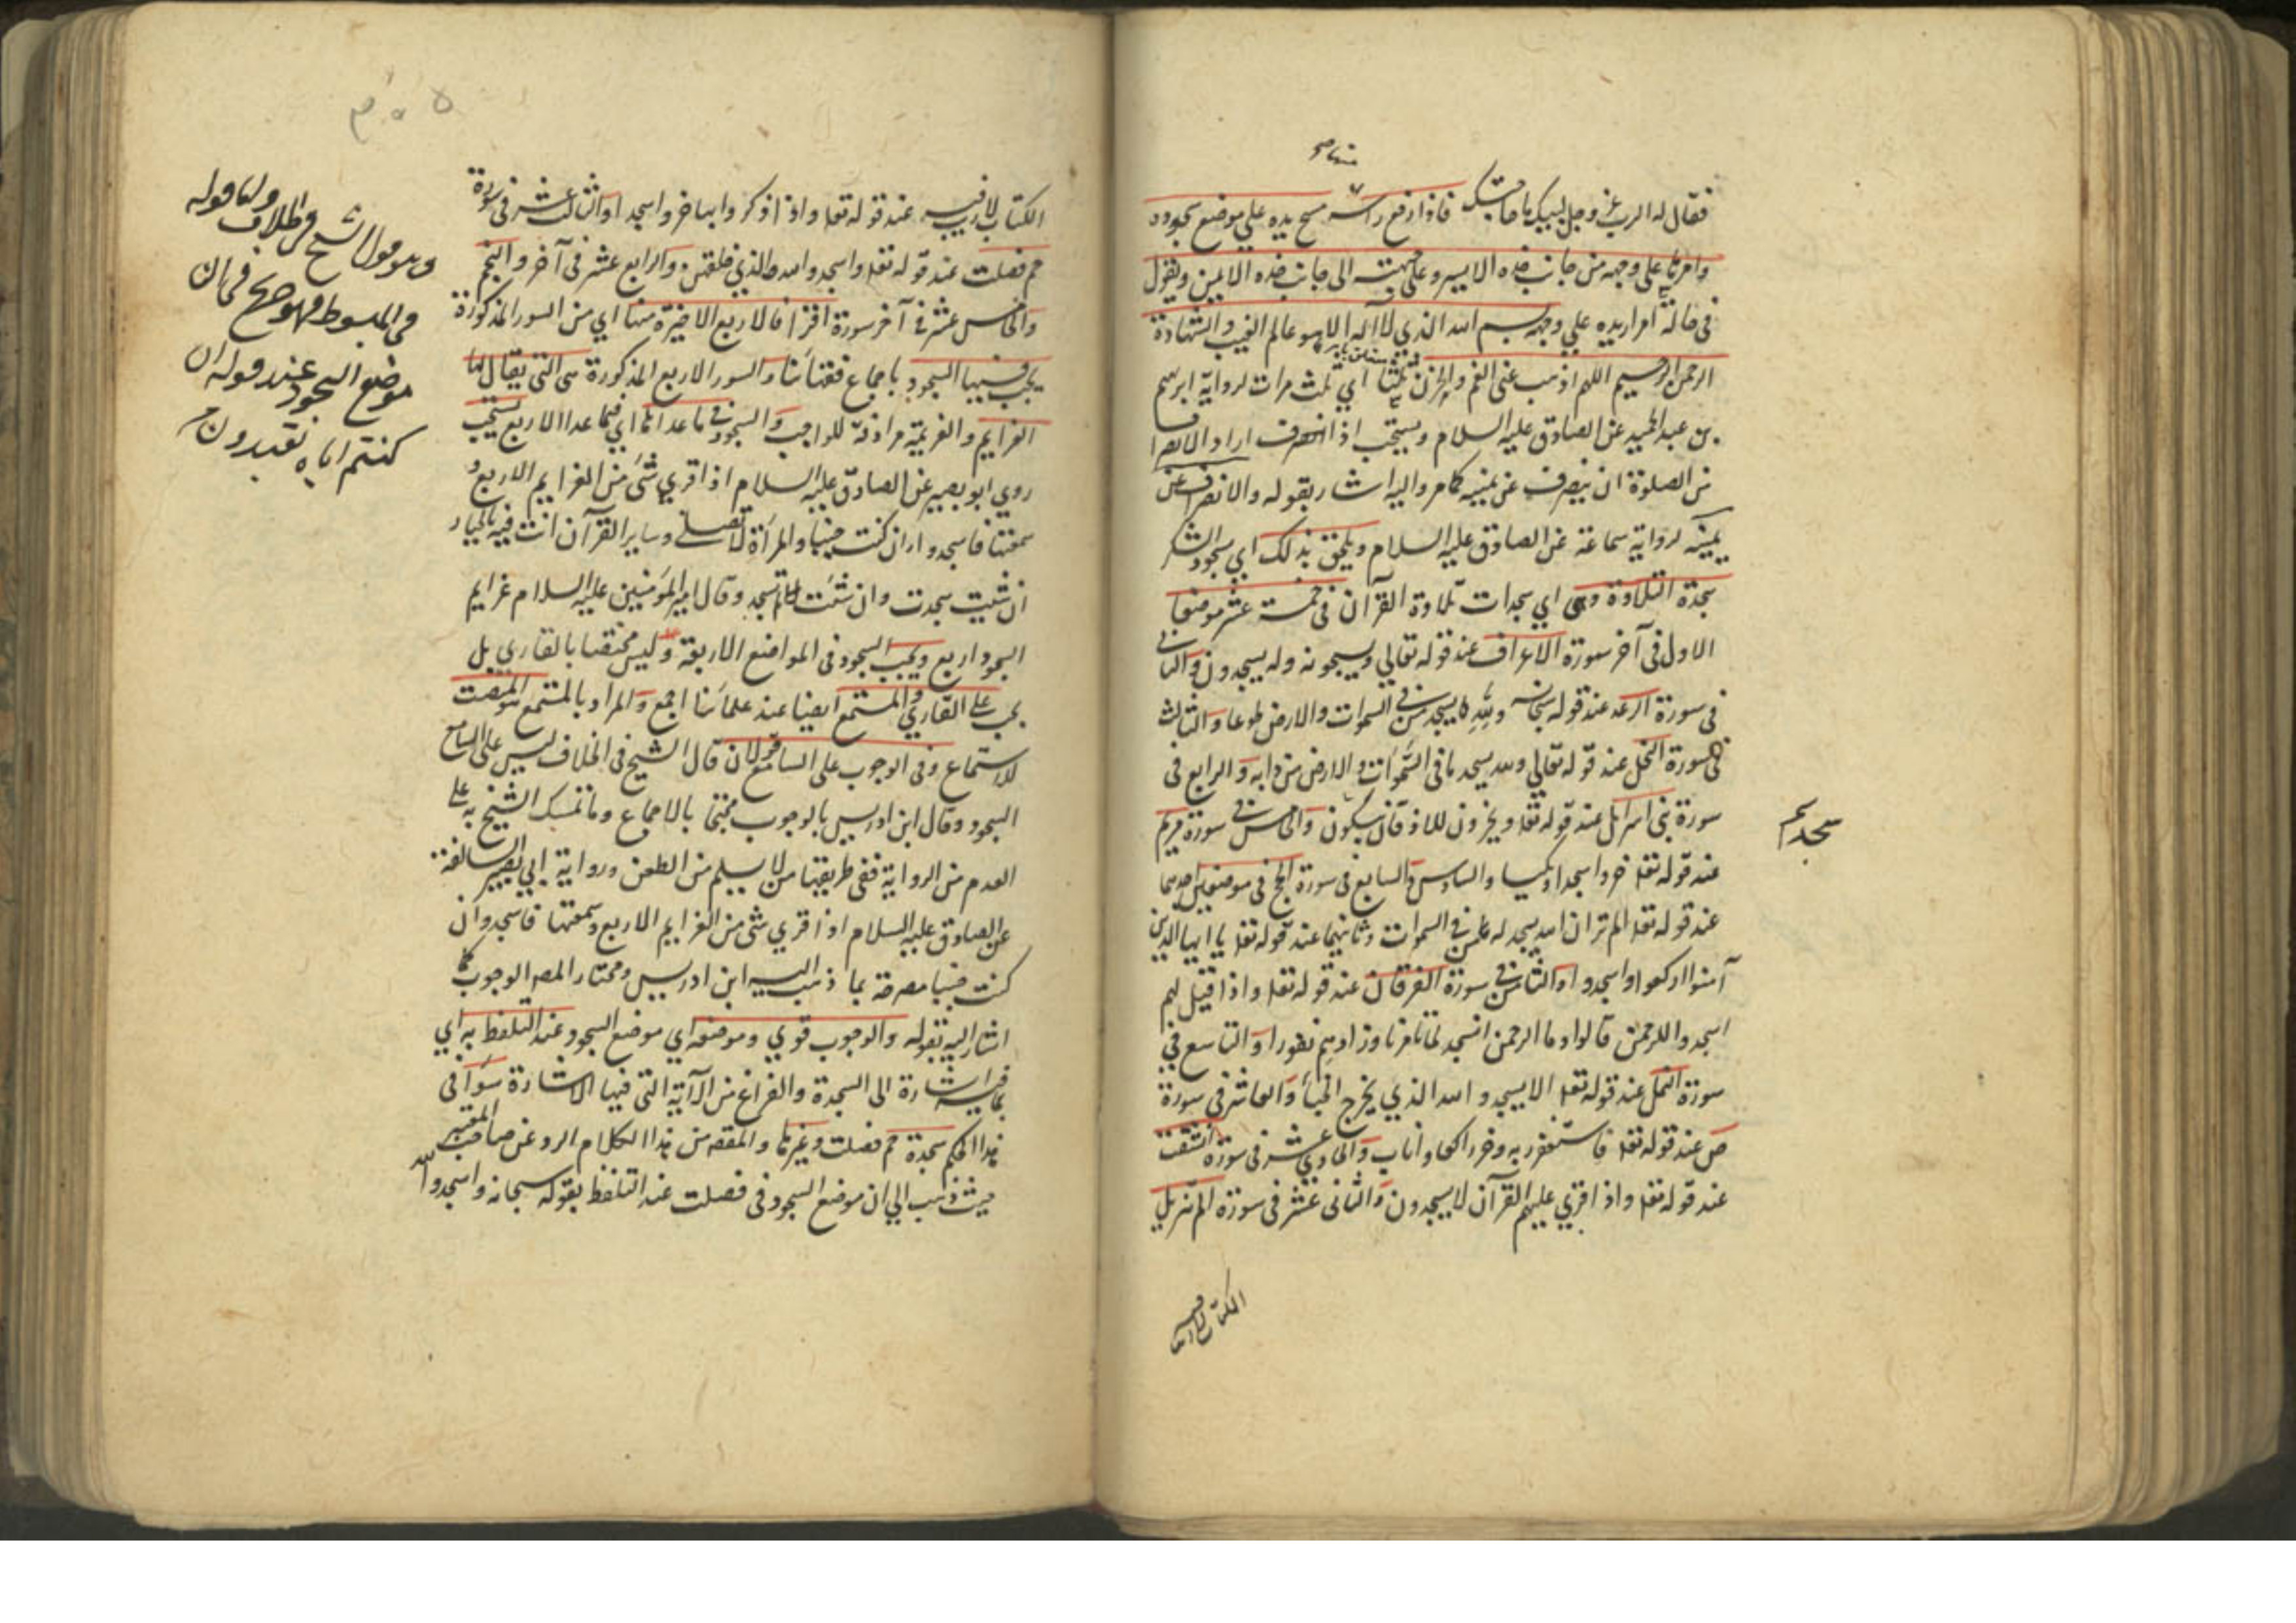 فقال له الرب عز وجل لبيك ما حاجتك فاذا رفع راسه مسح يده على موضع سجوده
وامرها على وجهه من جانب خده الايسر وعلى جبهته الى جانب خده الايمن ويقول
فى حالة امرار يده علي وجهه بسم الله الذي لا اله الا هو عالم الغيب والشهادة
الرحمن الرحيم اللهم اذهب عنى الغم والحزن ثلثا اي ثلث مرات لرواية ابرهيم
بن عبد الحميد عن الصادق عليه السلام ويستحب اذا انصرف اراد الانصراف
من الصلوة ان ينصرف عن يمينه كما مر واليه اشار بقوله والانصراف عن
يمينه لرواية سماعة عن الصادق عليه السلام ويلحق بذلك اي بسجود الشكر
سجدة التلاوة وهى اي سجدات تلاوة القرآن فى خمسة عشر موضعا
الاول فى آخر سورة الاعراف عند قوله تعالي ويسبحونه وله يسجدون والثانى
فى سورة الرعد عند قوله سبحانه ولله يسجد من فى السموات والارض طوعا والثالث
فى سورة النحل عند قوله تعالي ولله يسجد ما فى السموات والارض من دابة والرابع فى
سورة بنى اسرائيل عند قوله تعا ويخرون للاذقان يبكون والخامس فى سورة مريم
عند قوله تعا خروا سجدا وبكيا والسادس والسابع فى سورة الحج فى موضعين احدهما
عند قوله تعا الم تر ان الله يسجد له من فى السموات وثانيهما عند قوله تعا يا ايها الذين
آمنوا اركعوا واسجدوا والثامن فى سورة الفرقان عند قوله تعا واذا قيل لهم
اسجدوا للرحمن قالوا وما الرحمن انسجد لما تامرنا وزادهم نفورا والتاسع في
سورة النمل عند قوله تعا الا يسجدوا لله الذي يخرج الخبأ والعاشر فى سورة
ص عند قوله تعا فاستغفر ربه وخر راكعا واناب والحادي عشر فى سورة انشقت
عند قوله تعا واذا قري عليهم القرآن لا يسجدون والثانى عشر فى سورة الم تنزيل
الكتاب لا ريب
الكتاب لا ريب فيه عند قوله تعا واذا ذكروا بها خروا سجدا والثالث عشر فى سورة
حم فصلت عند قوله تعا واسجدوا لله الذي خلقهن والرابع عشر فى آخر والنجم
والخامس عشر فى آخر سورة اقرا فالاربع الاخيرة منها اي من السور المذكورة
يجب فيها السجود باجماع فقهائنا والسور الاربع المذكورة هى التى يقال لها
العزايم والعزيمة مرادفة للواجب والسجود فى ما عداها اي فيما عدا الاربع يستحب
روي ابو بصير عن الصادق عليه السلام اذا قري شى من العزايم الاربع و
سمعتها فاسجد وان كنت جنبا والمرأة لا تصلى وساير القرآن انت فيه بالخيار
ان شيت سجدت وان شئت لم تسجد وقال امير المؤمنين عليه السلام عزايم
السجود اربع ويجب السجود فى المواضع الاربعة وليس مختصا بالقاري بل
يجب على القاري والمستمع ايضا عند علمائنا اجمع والمراد بالمستمع المنصت
للاستماع وفى الوجوب على السامع قولان قال الشيخ فى الخلاف ليس على السامع
السجود وقال ابن ادريس بالوجوب محتجا بالاجماع وما تمسك الشيخ به على
العدم من الرواية ففى طريقها من لا يسلم من الطعن ورواية ابي بصير السالفة
عن الصادق عليه السلام اذا قري شى من العزايم الاربع وسمعتها فاسجد وان
كنت جنبا مصرحة بما ذهب اليه ابن ادريس ومختار المص الوجوب كما
اشار اليه بقوله والوجوب قوي وموضعه اي موضع السجود عند التلفظ به اي
بما فيه اشارة الى السجدة والفراغ من الآية التى فيها الاشارة سواء فى
هذا الحكم سجدة حم فصلت وغيرها والمقصد من هذا الكلام الرد عن صاحب المعتبر
حيث ذهب الي ان موضع السجود فى فصلت عند التلفظ بقوله سبحانه واسجدوا لله
وهو قول الشيخ فى الخلاف
فى المبسوط فهو صريح فى ان
موضع السجود عند قوله ان
كنتم اياه تعبدون